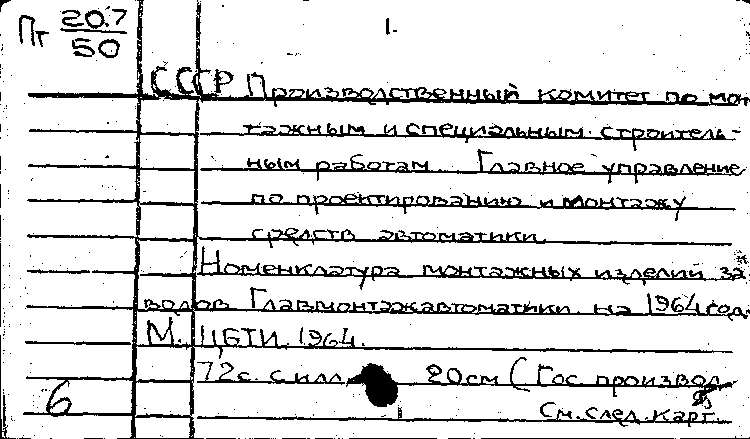 Пт 20.7
50
1.
СССР Производственный комитет по мон
тажным и специальным строитель-
ным работам. Главное управление
по проектированию и монтажу
средств автоматики
Номенклатура монтажных изделий за
водов Главмонтажавтоматики на 1964 год.
М. ЦБТИ. 1964.
72с. с илл. 20см (Гос производ
6
См. след. карт.